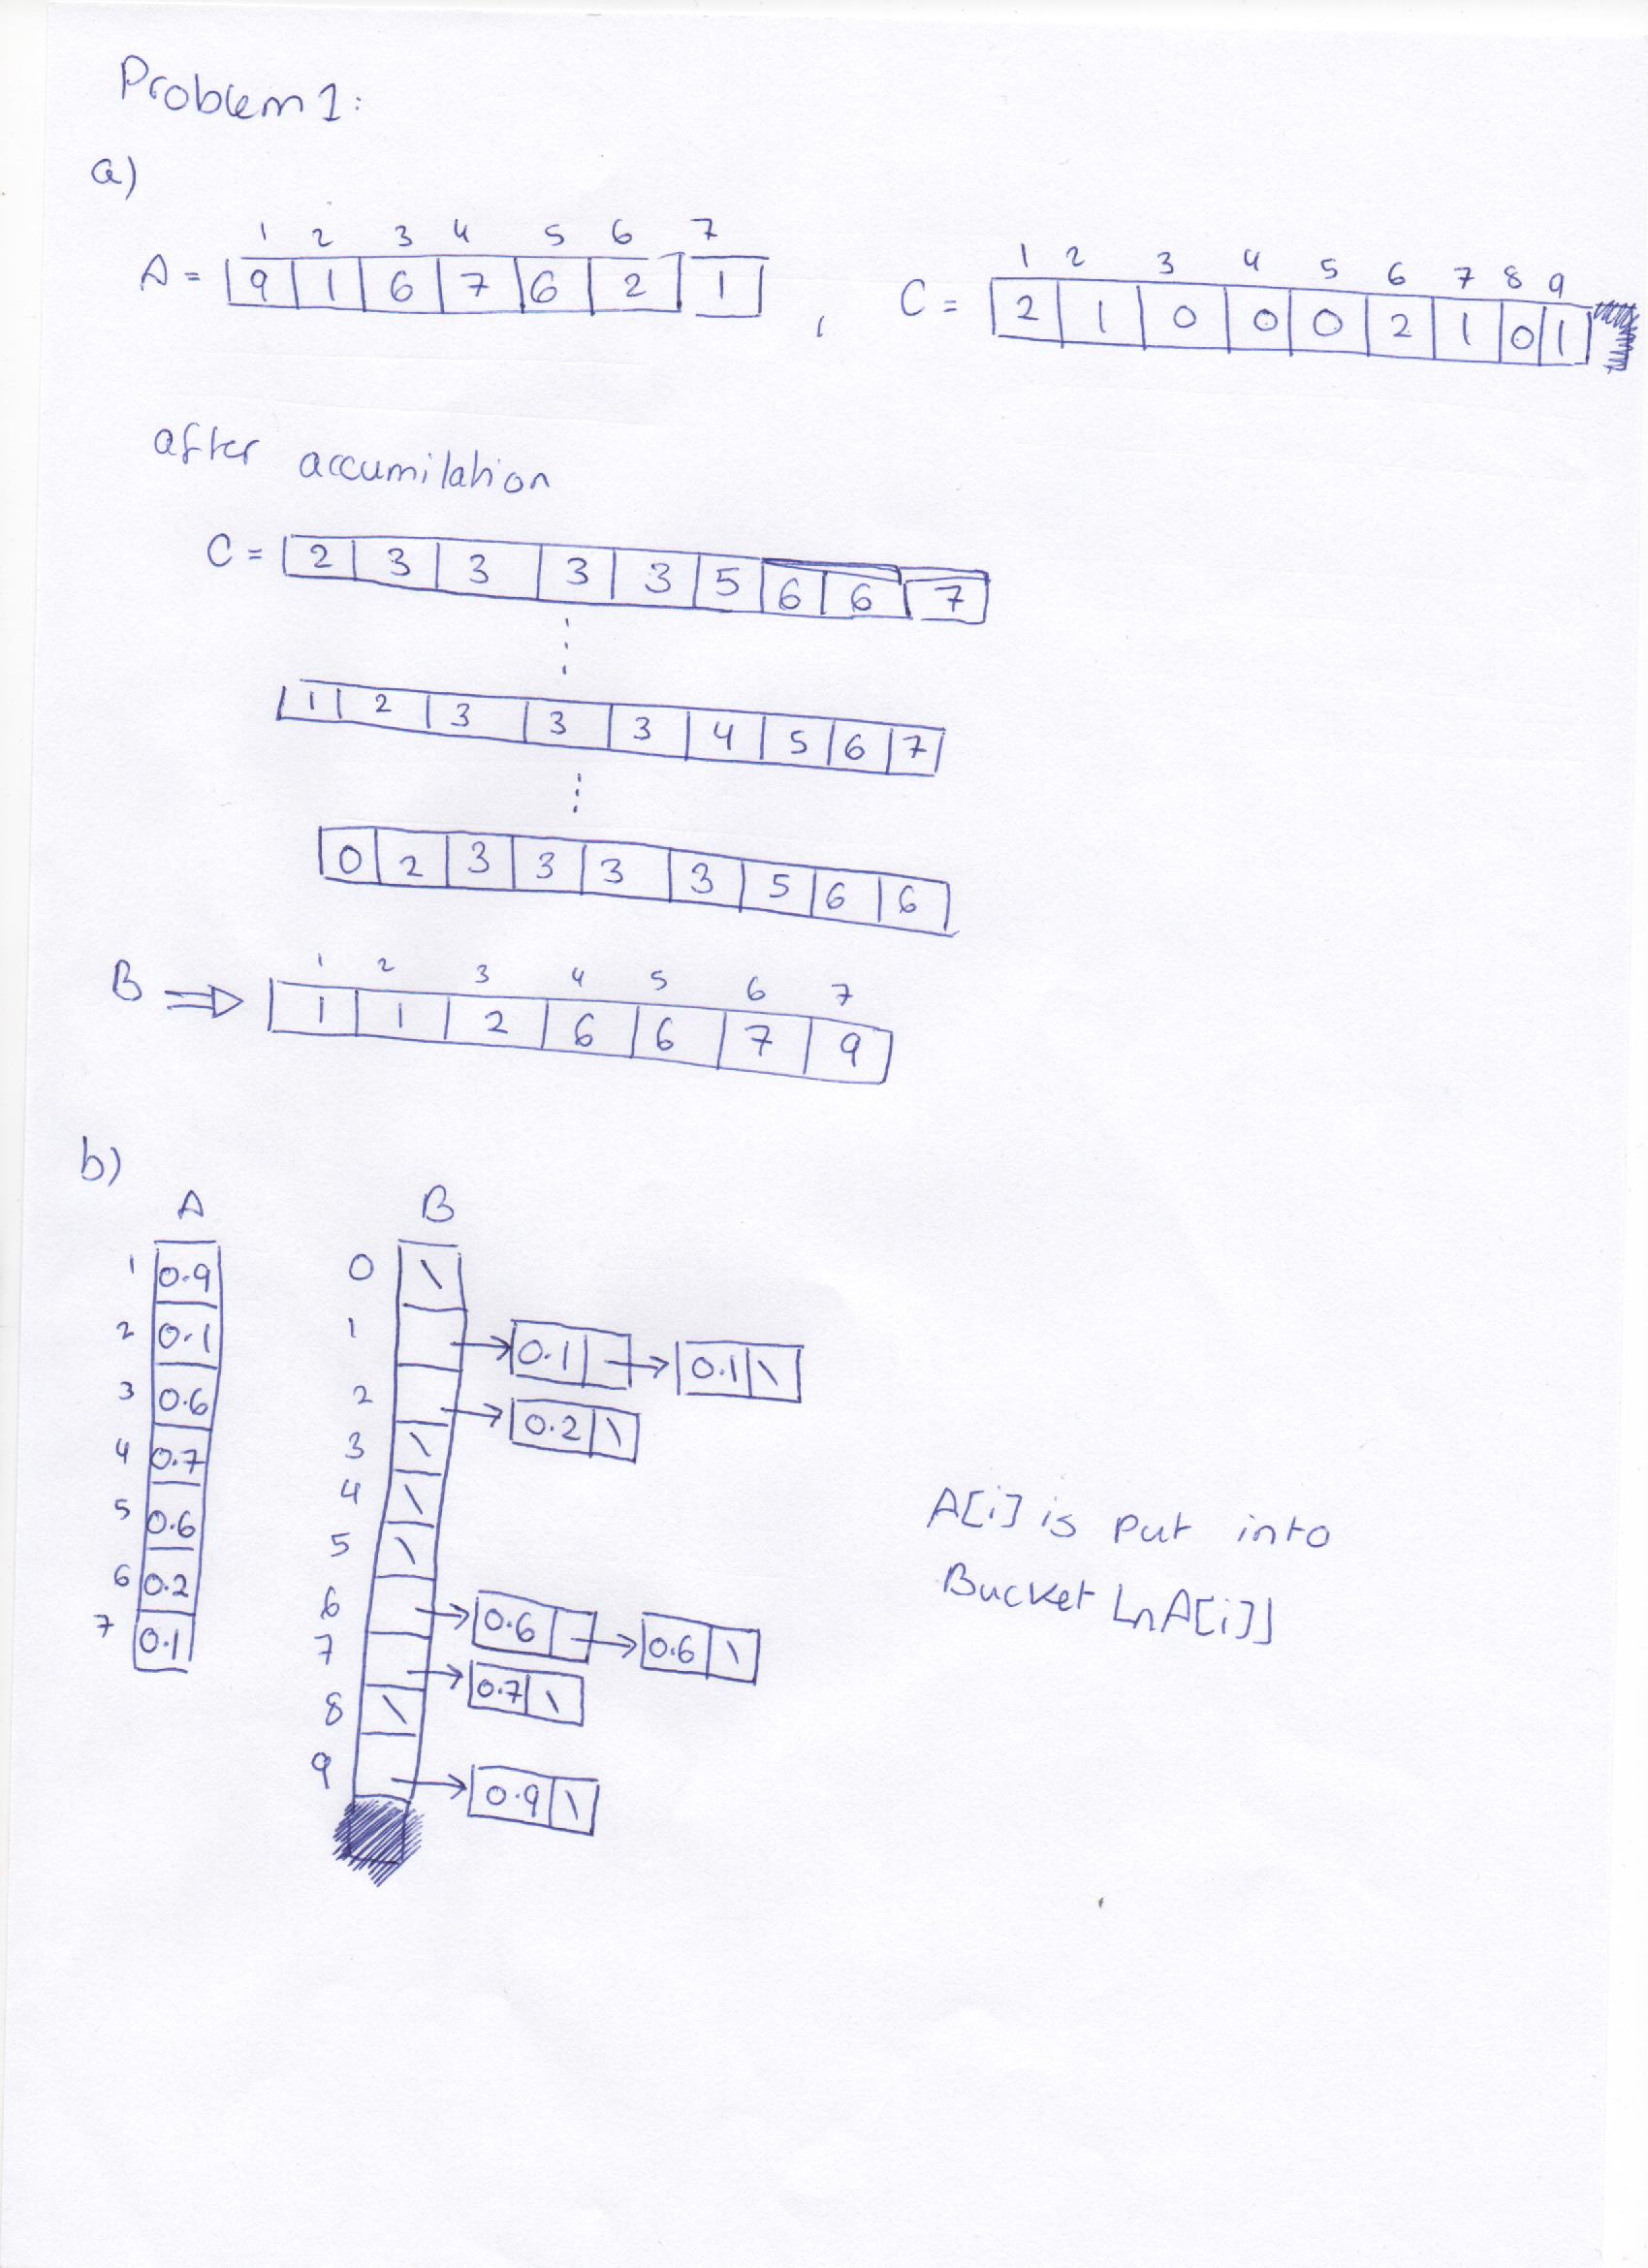 Problem 1:
a)
1 2 3 4 5 6 7
A = 9 1 6 7 6 2 1 ,
1 2 3 4 5 6 7 8 9
C = 2 1 0 0 0 2 1 0 1
after accumilation
C = 2 3 3 3 3 5 6 6 7
1 2 3 3 3 4 5 6 7
0 2 3 3 3 3 5 6 6
1 2 3 4 5 6 7
B ⇒ 1 1 2 6 6 7 9
b)
A
1 0.9
2 0.1
3 0.6
4 0.7
5 0.6
6 0.2
7 0.1
B
0 \
1 → 0.1 → 0.1 \
2 → 0.2 \
3 \
4 \
5 \
6 → 0.6 → 0.6 \
7 → 0.7 \
8 \
9 → 0.9 \
A[i] is put into
Bucket ⌊nA[i]⌋